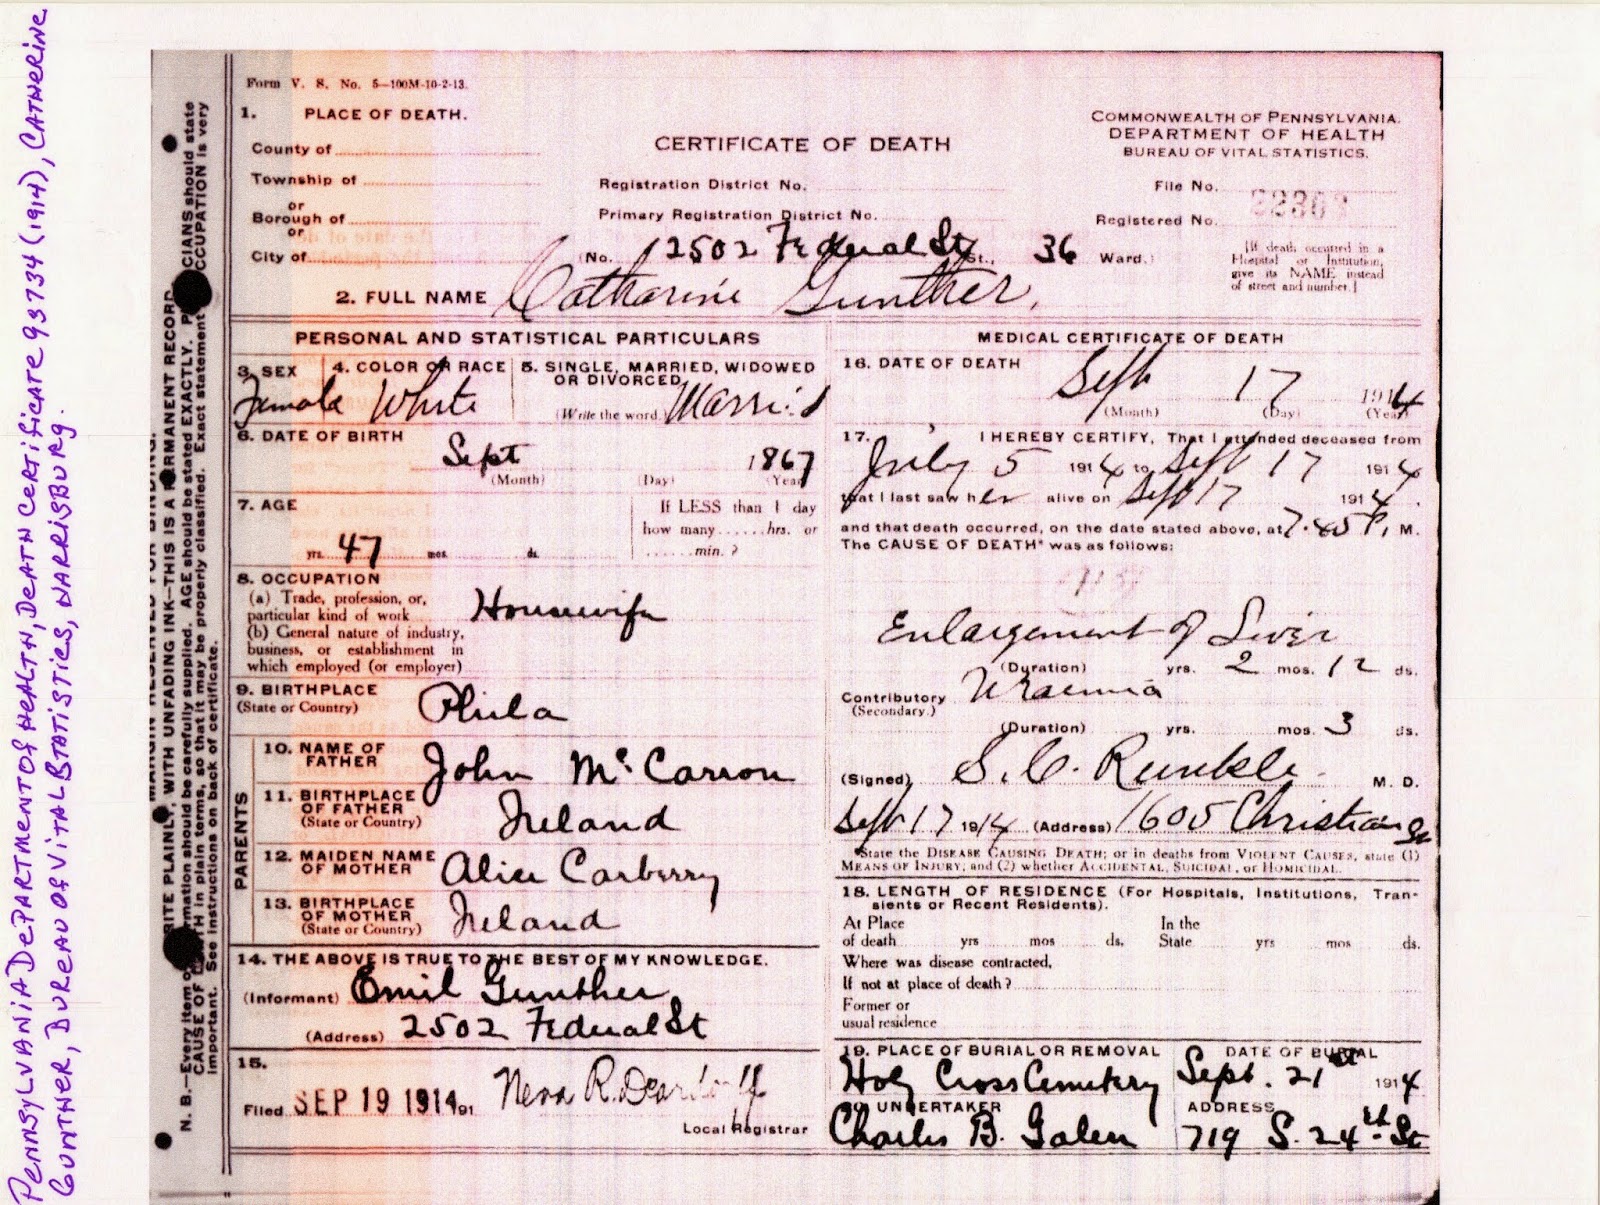 PENNSYLVANIA DEPARTMENT OF HEALTH, DEATH CERTIFICATE 93734 (1914), CATHERINE
GUNTHER, BUREAU OF VITAL STATISTICS, HARRISBURG.
MARGIN RESERVED FOR BINDING.
RITE PLAINLY, WITH UNFADING INK—THIS IS A PERMANENT RECORD
N. B.—Every item of information should be carefully supplied. AGE should be stated EXACTLY. PHYSICIANS should state
CAUSE OF DEATH in plain terms, so that it may be properly classified. Exact statement OCCUPATION is very
important. See instructions on back of certificate.
Form V. S. No. 5—100M-10-2-13.
1. PLACE OF DEATH.
County of
Township of
or
Borough of
or
City of
CERTIFICATE OF DEATH
Registration District No.
Primary Registration District No.
(No. 2502 Federal St St., 36 Ward.)
COMMONWEALTH OF PENNSYLVANIA.
DEPARTMENT OF HEALTH
BUREAU OF VITAL STATISTICS.
File No.
Registered No.
[If death occurred in a
Hospital or Institution,
give its NAME instead
of street and number.]
2. FULL NAME Catharine Gunther.
PERSONAL AND STATISTICAL PARTICULARS
3. SEX
Female
4. COLOR OR RACE
White
5. SINGLE, MARRIED, WIDOWED
OR DIVORCED
(Write the word. Married
6. DATE OF BIRTH
Sept 1867
(Month) (Day) (Year)
7. AGE
47
yrs. mos. ds.
If LESS than 1 day
how many......hrs. or
......min. ?
8. OCCUPATION
(a) Trade, profession, or,
particular kind of work Housewife
(b) General nature of industry,
business, or establishment in
which employed (or employer)
9. BIRTHPLACE
(State or Country) Phila
PARENTS
10. NAME OF
FATHER John McCarron
11. BIRTHPLACE
OF FATHER
(State or Country) Ireland
12. MAIDEN NAME
OF MOTHER Alice Carberry
13. BIRTHPLACE
OF MOTHER
(State or Country) Ireland
14. THE ABOVE IS TRUE TO THE BEST OF MY KNOWLEDGE.
(Informant) Emil Gunther
(Address) 2502 Federal St
15.
Filed SEP 19 1914 191 Neva R. Deardorff
Local Registrar
MEDICAL CERTIFICATE OF DEATH
16. DATE OF DEATH
Sept 17 1914
(Month) (Day) (Year)
17. I HEREBY CERTIFY, That I attended deceased from
July 5 1914 to Sept 17 1914
that I last saw her alive on Sept 17 1914.
and that death occurred, on the date stated above, at 7.45 P. M.
The CAUSE OF DEATH* was as follows:
Enlargement of Liver
(Duration) yrs. 2 mos. 12 ds.
Contributory Uraemia
(Secondary.)
(Duration) yrs. mos. 3 ds.
(Signed) S. C. Runkle M. D.
Sept 17 1914 (Address) 1605 Christian St
*State the DISEASE CAUSING DEATH; or in deaths from VIOLENT CAUSES, state (1)
MEANS OF INJURY; and (2) whether ACCIDENTAL, SUICIDAL, or HOMICIDAL.
18. LENGTH OF RESIDENCE (For Hospitals, Institutions, Tran-
sients or Recent Residents).
At Place
of death yrs mos ds.
In the
State yrs mos ds.
Where was disease contracted,
If not at place of death?
Former or
usual residence
19. PLACE OF BURIAL OR REMOVAL
Holy Cross Cemetery
DATE OF BURIAL
Sept. 21st 1914
20 UNDERTAKER
Charles B. Galen
ADDRESS
719 S. 24th St